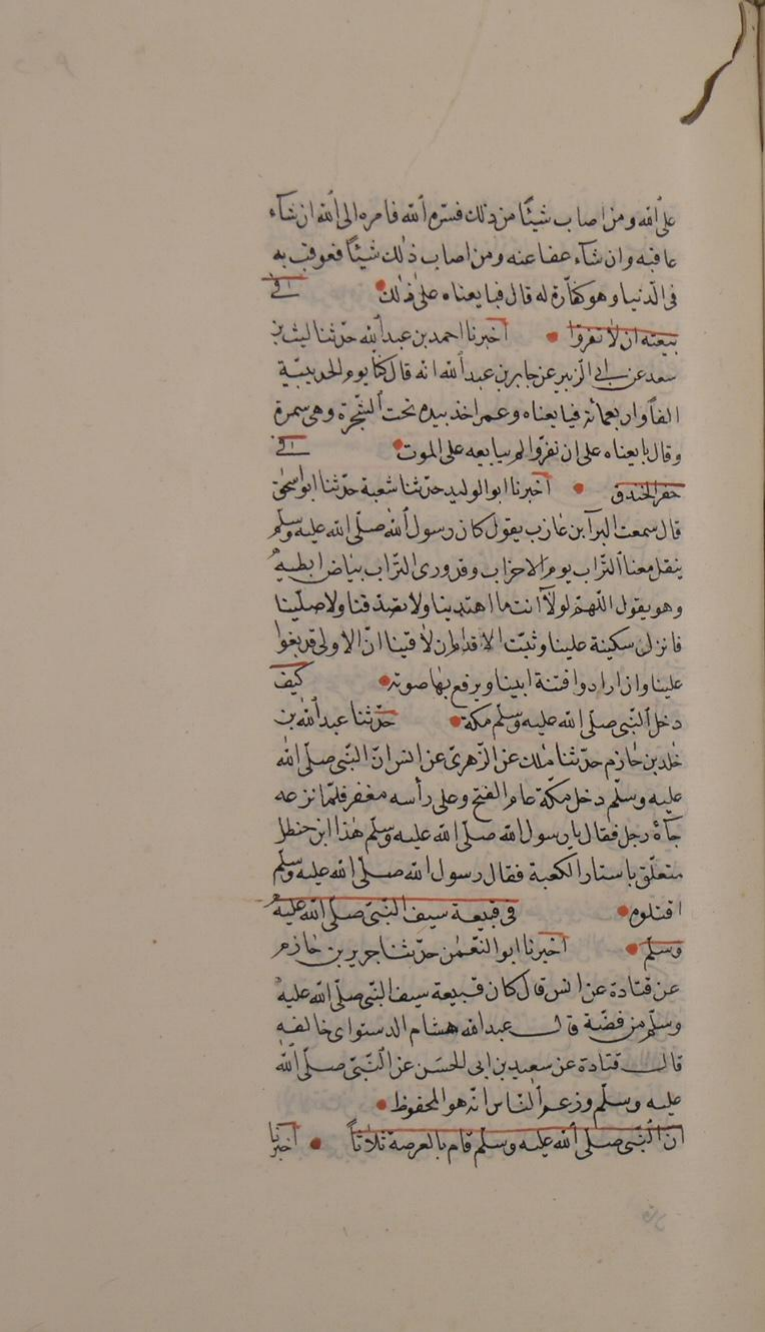 على الله ومن اصاب شيئًا من ذلك فستره الله فامره الى الله ان شآء
عاقبه وان شآء عفا عنه ومن اصاب ذٰلك شيئًا فعوقب به
فى الدّنيا وهو كفّارة له قال فبايعناه على ذٰلك • فى
بيعته ان لا نفروا • اخبرنا احمد بن عبد الله حدّثنا ليث بن
سعد عن ابى الزبير عن جابر بن عبد الله انه قال كنا يوم الحديبية
الفًا واربعمائة فبايعناه وعمر اخذ بيده تحت الشّجرة وهى سمرة
وقال بايعناه على ان نفرّوا لم يبايعه على الموت • فى
حفر الخندق • اخبرنا ابو الوليد حدّثنا شعبة حدّثنا ابو اسحٰق
قال سمعت البرآ ابن عازب يقول كان رسول الله صلّى الله عليه وسلّم
ينقل معنا التّراب يوم الاحزاب وقد ورى التّراب بياض ابطيه
وهو يقول اللّهمّ لولآ انت ما اهتدينا ولا تصدّقنا ولا صلّينا
فانزلن سكينة علينا وثبّت الاقدام ان لاقينا انّ الاولى قد بغوا
علينا وان ارادوا فتنة ابينا ويرفع بها صوته • كيف
دخل النّبى صلّى الله عليه وسلّم مكة • حدّثنا عبد الله بن
خٰلد بن حازم حدّثنا مٰلك عن الزّهرى عن انس انّ النّبى صلّى الله
عليه وسلّم دخل مكّة عام الفتح وعلى رأسه مغفر فلمّا نزعه
جآءهُ رجل فقال يا رسول الله صلّى الله عليه وسلّم هٰذا ابن خطل
متعلّق باستار الكعبة فقال رسول الله صلّى الله عليه وسلّم
اقتلوه • فى قبيعة سيف النّبىّ صلّى الله عليه
وسلّم • اخبرنا ابو النّعمٰن حدّثنا جرير بن حازم
عن قتادة عن انس قال كان قبيعة سيف النّبى صلّى الله عليه
وسلّم من فضّة قال عبد الله هشام الدستواى خالفه
قال قتادة عن سعيد بن ابى الحسن عن النّبىّ صلّى الله
عليه وسلّم وزعم النّاس انّه هو المحفوظ •
انّ النّبى صلى الله عليه وسلّم قام بالعرصة ثلاثاً • اخبرنا